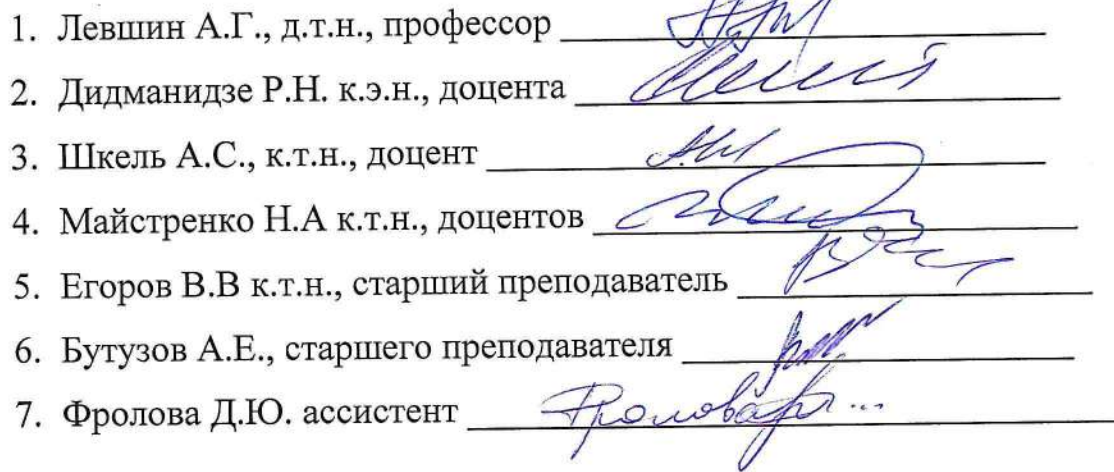 1. Левшин А.Г., д.т.н., профессор
2. Дидманидзе Р.Н. к.э.н., доцента
3. Шкель А.С., к.т.н., доцент
4. Майстренко Н.А к.т.н., доцентов
5. Егоров В.В к.т.н., старший преподаватель
6. Бутузов А.Е., старшего преподавателя
7. Фролова Д.Ю. ассистент